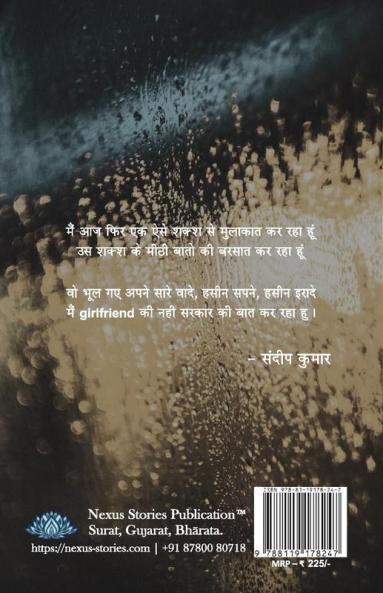 मैं आज फिर एक ऐसे शक्श से मुलाकात कर रहा हूं
उस शक्श के मीठी बातो की बरसात कर रहा हूं
वो भूल गए अपने सारे वादे, हसीन सपने, हसीन इरादे
मैं girlfriend की नही सरकार की बात कर रहा हु ।
– संदीप कुमार
Nexus Stories Publication™
Surat, Gujarat, Bhārata.
https://nexus-stories.com | +91 87800 80718
ISBN 978-81-19178-24-7
9 788119 178247
MRP – ₹ 225/-